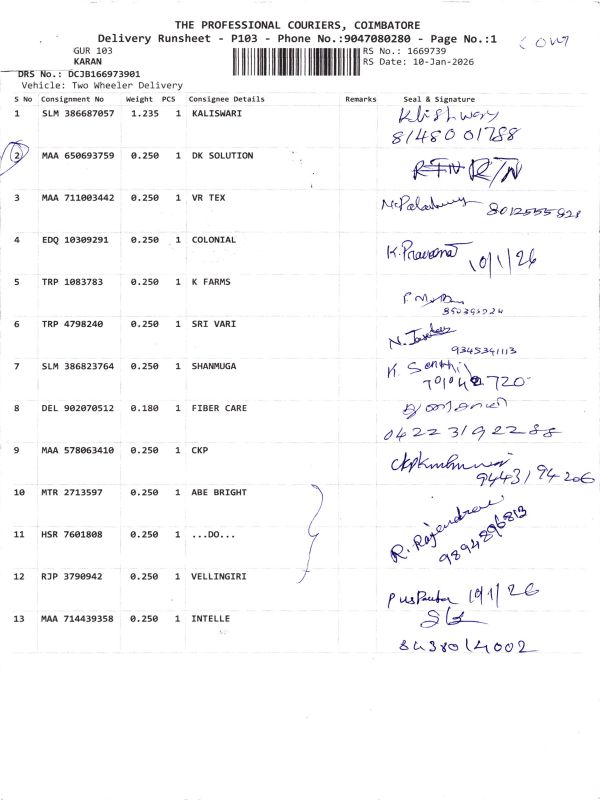 THE PROFESSIONAL COURIERS, COIMBATORE
Delivery Runsheet - P103 - Phone No.:9047080280 - Page No.:1
GUR 103
RS No.: 1669739
KARAN
RS Date: 10-Jan-2026
DRS No.: DCJB166973901
Vehicle: Two Wheeler Delivery
S No Consignment No Weight PCS Consignee Details Remarks Seal & Signature
1 SLM 386687057 1.235 1 KALISWARI
8148001788
2 MAA 650693759 0.250 1 DK SOLUTION RTN RTN
3 MAA 711003442 0.250 1 VR TEX
4 EDQ 10309291 0.250 1 COLONIAL K. 10/1/26
5 TRP 1083783 0.250 1 K FARMS
6 TRP 4798240 0.250 1 SRI VARI N.
9345341113
7 SLM 386823764 0.250 1 SHANMUGA K.
8 DEL 902070512 0.180 1 FIBER CARE
0422 3192288
9 MAA 578063410 0.250 1 CKP
9443194206
10 MTR 2713597 0.250 1 ABE BRIGHT
11 HSR 7601808 0.250 1 ...DO... R. Rajendran
9894896813
12 RJP 3790942 0.250 1 VELLINGIRI 10/1/26
13 MAA 714439358 0.250 1 INTELLE
8438014002